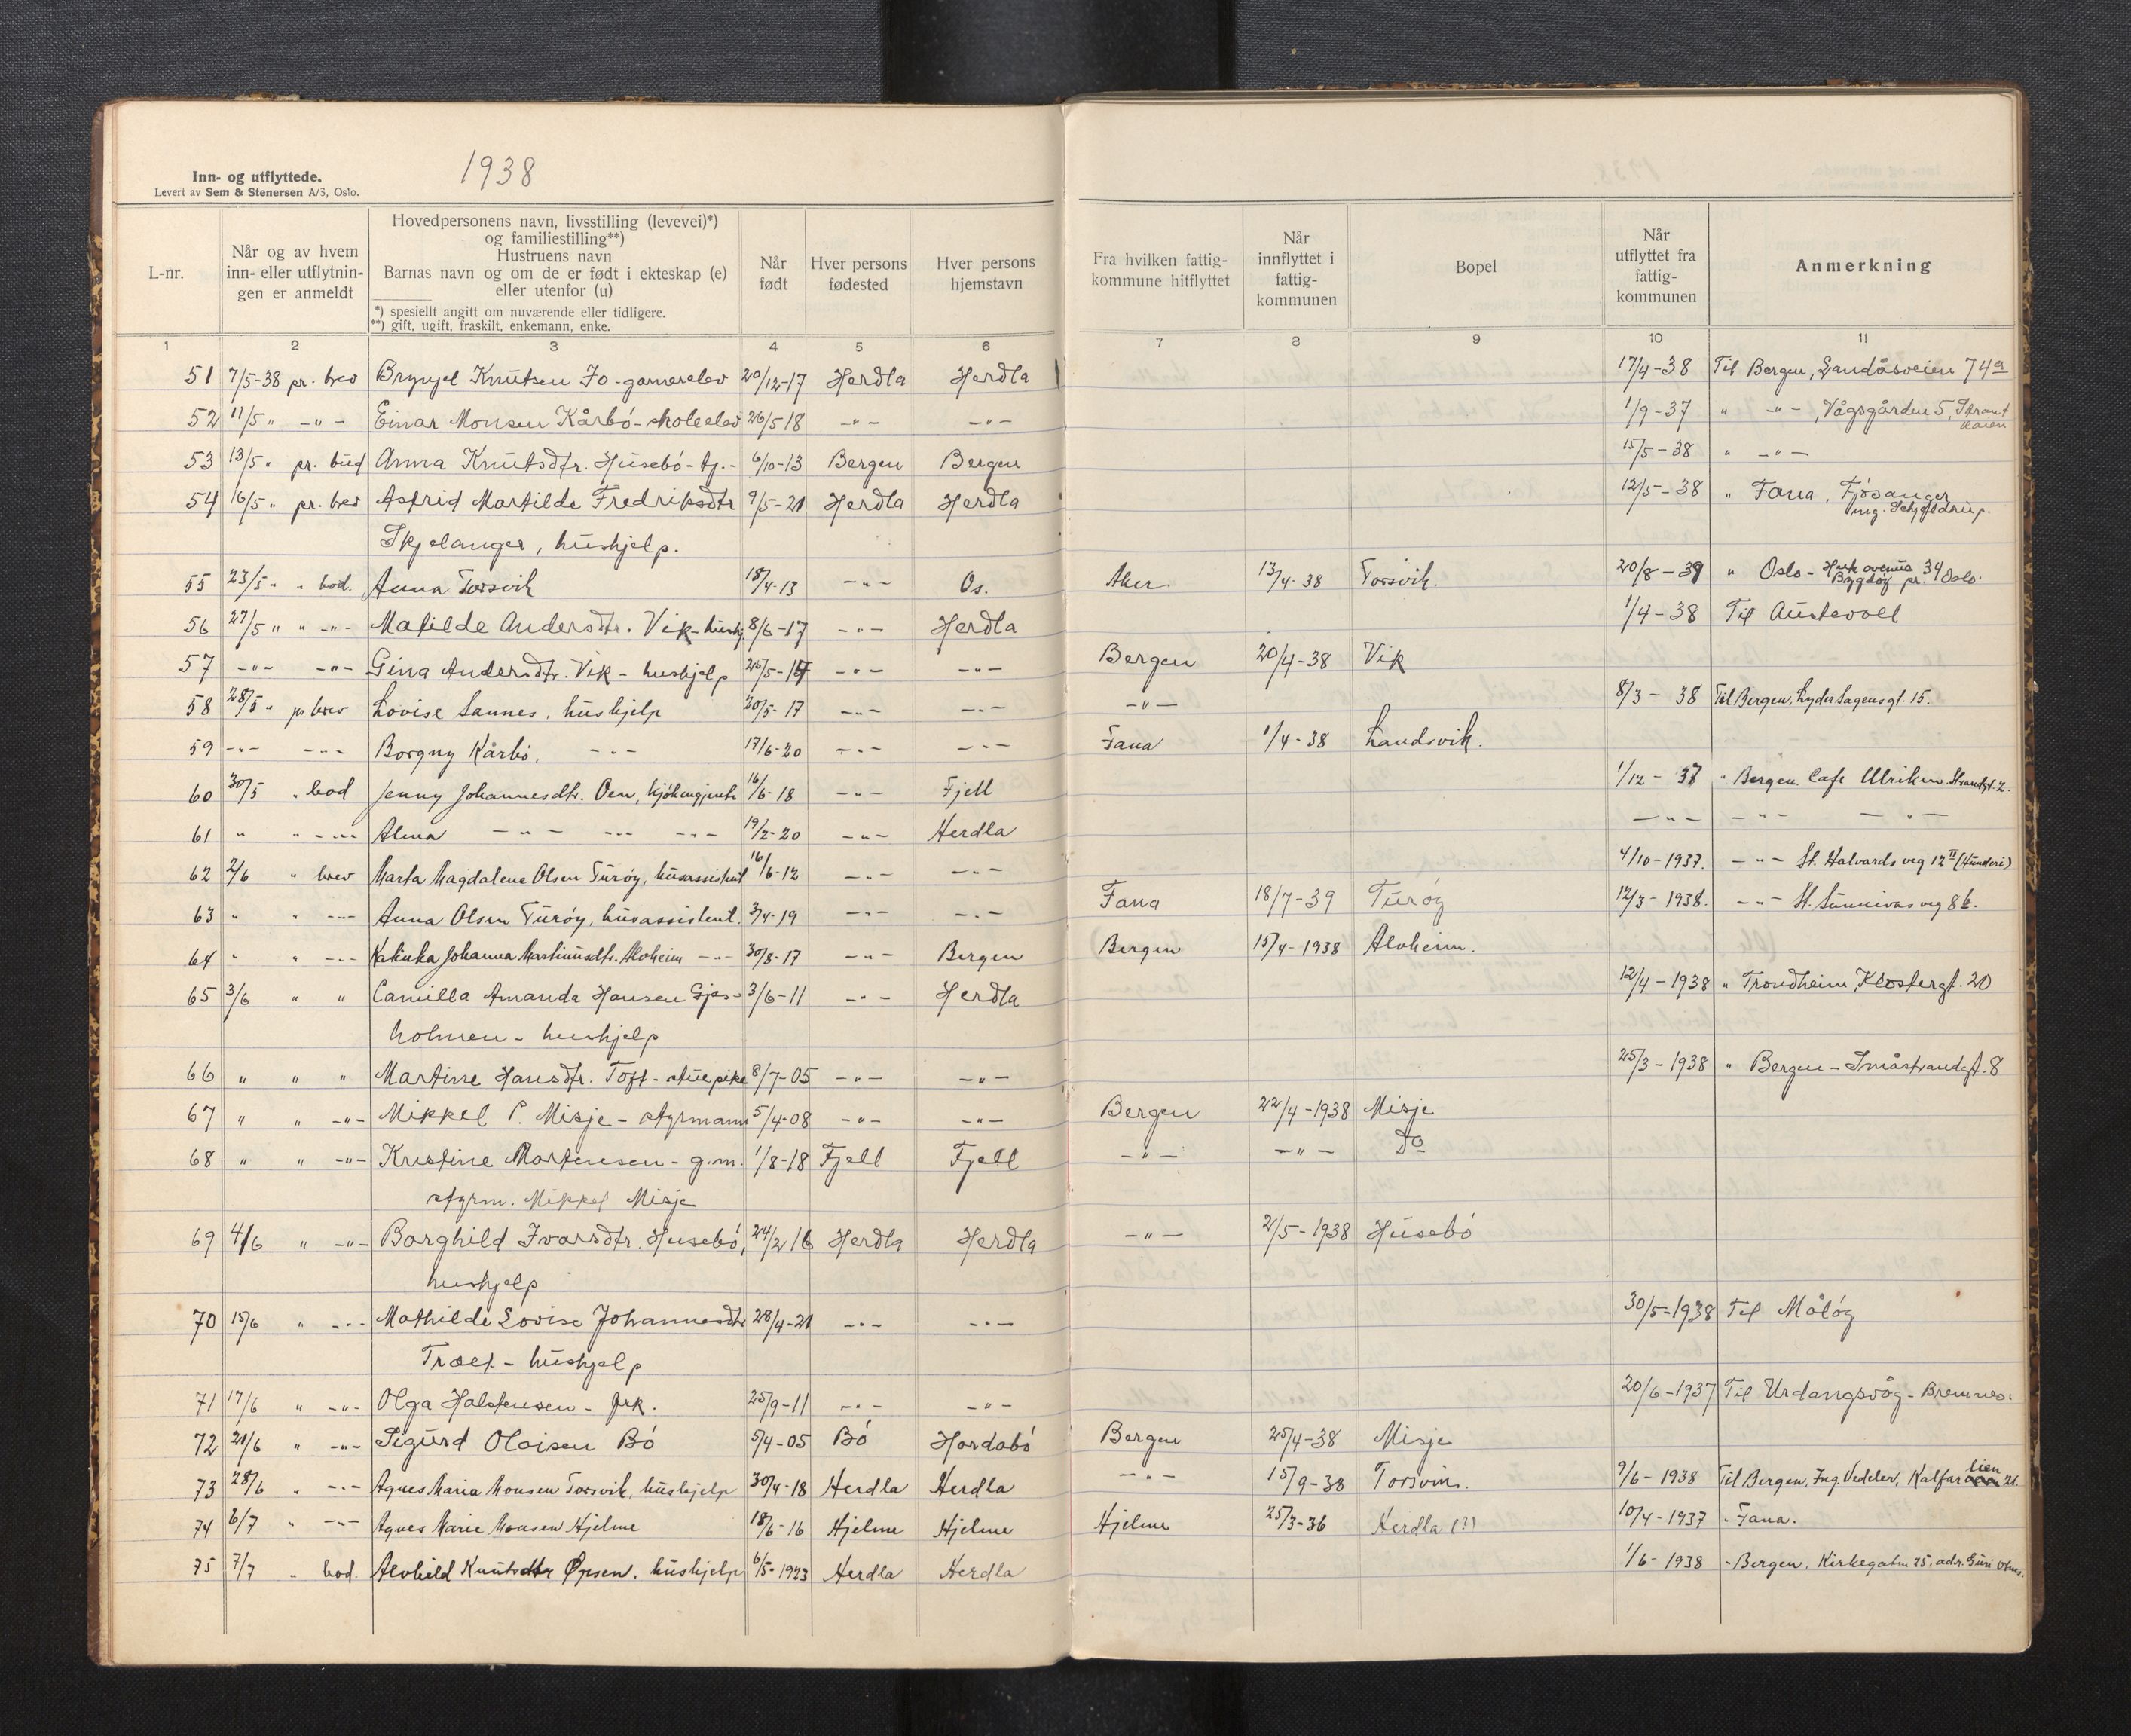 1938
Inn- og utflyttede.
Levert av Sem & Stenersen A/S, Oslo.
L-nr.
Når og av hvem inn- eller utflytnin-gen er anmeldt
Hovedpersonens navn, livsstilling (levevei)*)
og familiestilling**)
Hustruens navn
Barnas navn og om de er født i ekteskap (e)
eller utenfor (u)
*) spesielt angitt om nuværende eller tidligere.
**) gift, ugift, fraskilt, enkemann, enke.
Når født
Hver persons fødested
Hver persons hjemstavn
Fra hvilken fattig-kommune hitflyttet
Når innflyttet i fattig-kommunen
Bopel
Når utflyttet fra fattig-kommunen
Anmerkning
1 2 3 4 5 6 7 8 9 10 11
51 7/5-38 pr. brev Brynjel Knutsen Jo - 20/12-17 Herdla Herdla 17/4-38 Til Bergen, Landåsveien 74
52 11/5 " -"- Einar Monsen Kårbó - skoleelev 26/5 18 -"- -"- 1/9-37 " -"-, Vågsgården 5,
53 13/5 " pr. bud Anna Knutsdtr. Husebó - tj. - 6/10-13 Bergen Bergen 15/5-38 " -"-
54 16/5 " pr. brev Astrid Martilde Fredriksdtr 9/5-21 Herdla Herdla 12/5-38 " Fana, Fjósanger
Skjelanger, hushjelp. ing. Schjelderup.
55 23/5 " " bod. Anna Torsvik 18/4-13 -"- Os. Aker 13/4-38 Torsvik. 20/8-39 " Oslo - Huk avenue 34
Bygdöy pr. Oslo.
56 27/5 " " -"- Matilde Andersdtr. Vik - hushj. 8/6-17 -"- Herdla 1/4-38 Til Austevoll
57 -"- -"- Gina Andersdtr. Vik - hushjelp 25/5- -"- -"- Bergen 20/4-38 Vik
58 28/5 " pr brev Lovise Sannes, hushjelp 20/5-17 -"- -"- -"- 8/3-38 Til Bergen, Lyder Sagensgt. 15.
59 -"- -"- Borgny Kårbó, -"- 17/6-20 -"- -"- Fana 1/4-38 Landsvik.
60 30/5 " bod Jenny Johannesdtr. Oen, kjökengjente 16/6-18 -"- Fjell 1/12-37 " Bergen. Cafe Ulriken. Strandgt. 2.
61 " " -"- Alma -"- -"- -"- 19/2-20 -"- Herdla -"- -"- -"-
62 2/6 " brev Marta Magdalene Olsen Turöy, husassistent 16/6-12 -"- -"- 4/10-1937. -"- St. Halvards veg 12 II
63 " " -"- Anna Olsen Turöy, husassistent. 3/4-19 -"- -"- Fana 18/7-39 Turóy 12/3-1938. -"- St. Sunnivas veg 8 b.
64 " " -"- Katinka Johanna Martinusdtr. Alvheim -"- 30/8-17 -"- Bergen Bergen 15/4-1938 Alvheim.
65 3/6 " " Camilla Amanda Hansen Gjes- 3/6-11 -"- Herdla 12/4-1938 " Trondheim, Klostergt. 20
holmen - hushjelp
66 " " " Martine Hansdtr. Toft - stuepike 8/7-05 -"- -"- 25/3-1938 " Bergen - Småstrandgt. 8
67 " " -"- Mikkel P. Misje - styrmann 5/4-08 -"- -"- Bergen 22/4-1938 Misje
68 " " -"- Kristine Mortensen - g.m. 1/8-18 Fjell Fjell -"- -"- Do
styrm. Mikkel Misje
69 4/6 " -"- Borghild Ivarsdtr. Husebó, 24/2 16 Herdla Herdla -"- 2/5-1938 Húsebó
hushjelp
70 15/6 " -"- Mathilde Lovise Johannesdtr 28/4-21 -"- -"- 30/5-1938 Til Målóy
Træet - hushjelp
71 17/6 " -"- Olga Halstensen - frk. 25/9-11 -"- -"- 20/6-1937 Til Urdangsvåg - Bremnes.
72 21/6 " -"- Sigurd Olaisen Bó 5/4-05 Bó Hordabó Bergen 25/4-38 Misje
73 28/6 " -"- Agnes Maria Monsen Torsvik, hushjelp 30/4-18 Herdla Herdla -"- 15/9-38 Torsvik. 9/6-1938 Til Bergen, Ing Vedeler, Kalfarlien 21.
74 6/7 " -"- Agnes Marie Monsen Hjelme 18/6-16 Hjelme Hjelme Hjelme 25/3-36 Herdla (?) 10/4-1937 " Fana.
75 7/7 " bod. Alvhild Knutsdtr Öpsen, hushjelp 6/5-1923 Herdla Herdla 1/6-1938 " Bergen, Kirkegaten 25, adr. Guri